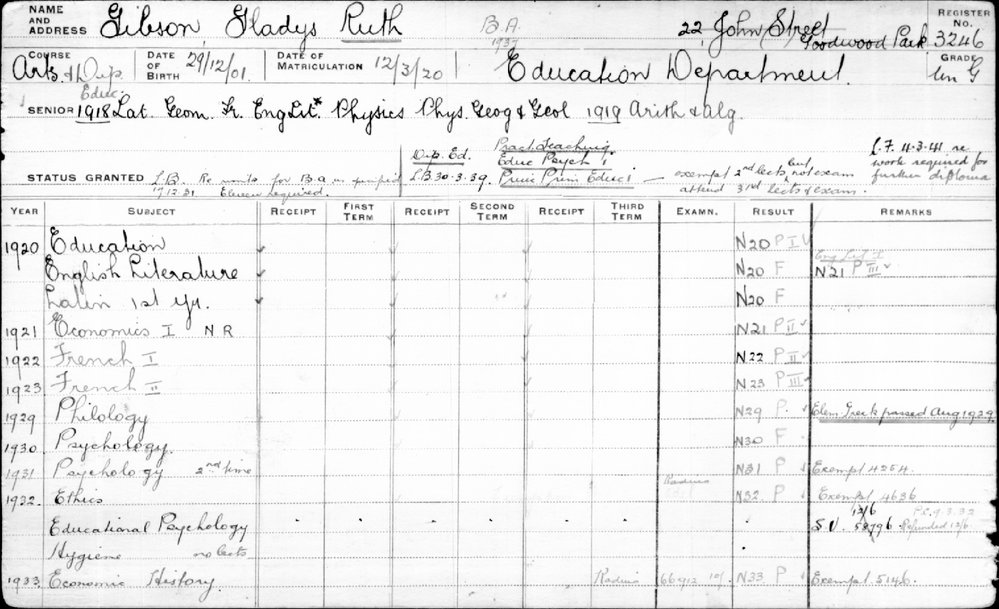 NAME AND ADDRESS Gibson, Gladys Ruth B.A. 1937 22, John Street Goodwood Park REGISTER No. 3246
COURSE Arts & Dip. Educ. DATE OF BIRTH 29/12/01. DATE OF MATRICULATION 12/3/20 Education Department. GRADE Un G
SENIOR 1918 Lat. Geom. Fr. Eng Lit.* Physics Phys. Geog & Geol 1919 Arith & Alg.
Dip. Ed. Pract. Teaching
Educ Psych i
L.B. 30.3.39. Princ Prim Educ i — exempt 2nd lects, but not exam
attend 3rd lects & exam.
L.F. 11.3.41 re
work required for
further diploma
STATUS GRANTED L.B. Re units for B.a.
17.12.31. Eleven required.
YEAR SUBJECT RECEIPT FIRST TERM RECEIPT SECOND TERM RECEIPT THIRD TERM EXAMN. RESULT REMARKS
1920 Education N20 P IV
English Literature N20 F Eng Lit I N21 P III
Latin 1st Yr. N20 F
1921 Economics I N R N21 P II
1922 French I N22 P II
1923 French II N23 P III
1929 Philology N29 P. Elem Greek passed Aug 1929.
1930 Psychology N30 F
1931 Psychology 2nd time N31 P Exempt 4254.
1932 Ethics Radius N32 P Exempt 4636
Educational Psychology S.V. 13/6 58796 P.C. 9.3.32 Refunded 13/6.
Hygiene no lects
1933 Economic History. Radius 66912 10/- N33 P Exempt 5146.